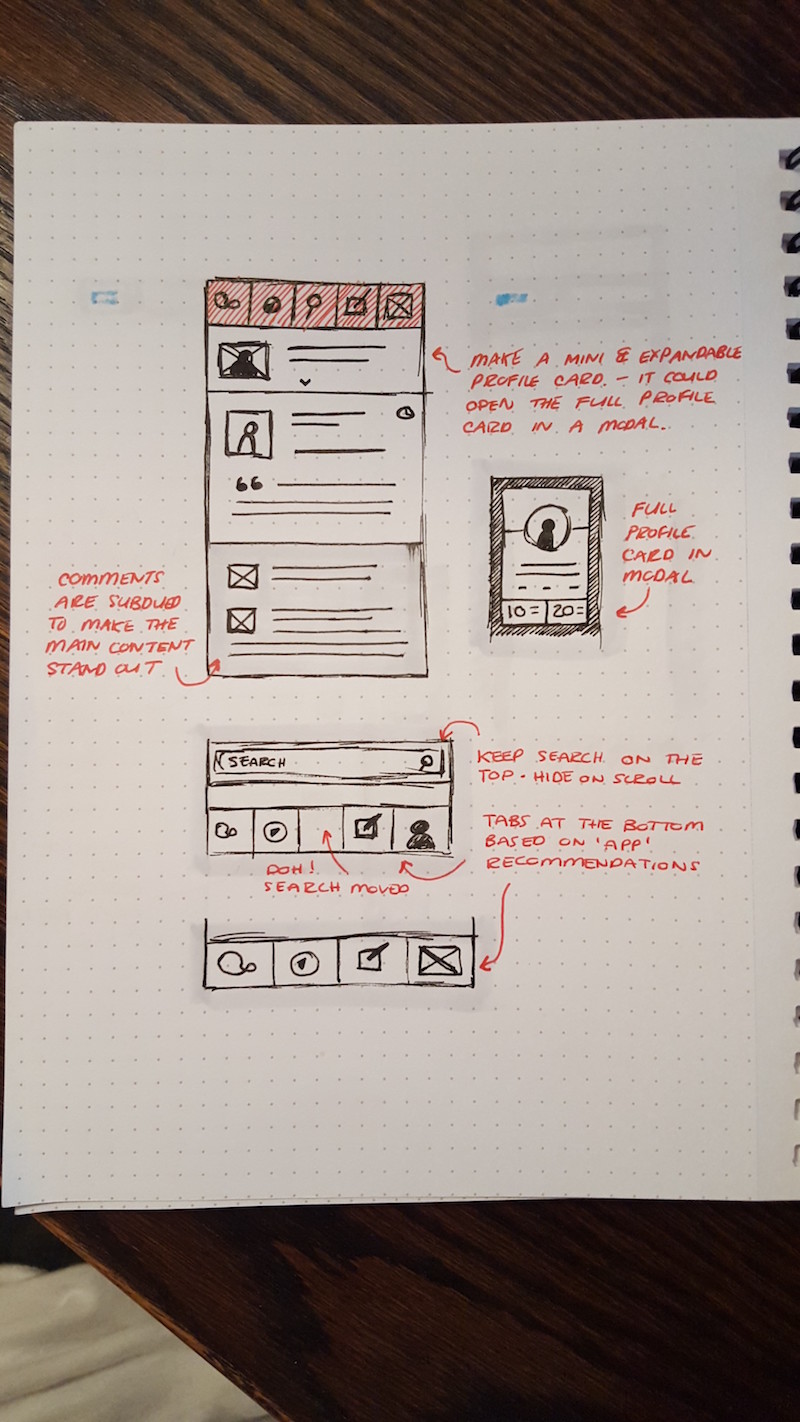 MAKE A MINI & EXPANDABLE
PROFILE CARD. - IT COULD
OPEN THE FULL PROFILE
CARD IN A MODAL.
FULL
PROFILE
CARD IN
MODAL
10= 20=
COMMENTS
ARE SUBDUED
TO MAKE THE
MAIN CONTENT
STAND OUT
SEARCH
KEEP SEARCH ON THE
TOP - HIDE ON SCROLL
TABS AT THE BOTTOM
BASED ON 'APP'
RECOMMENDATIONS
DOH!
SEARCH MOVED